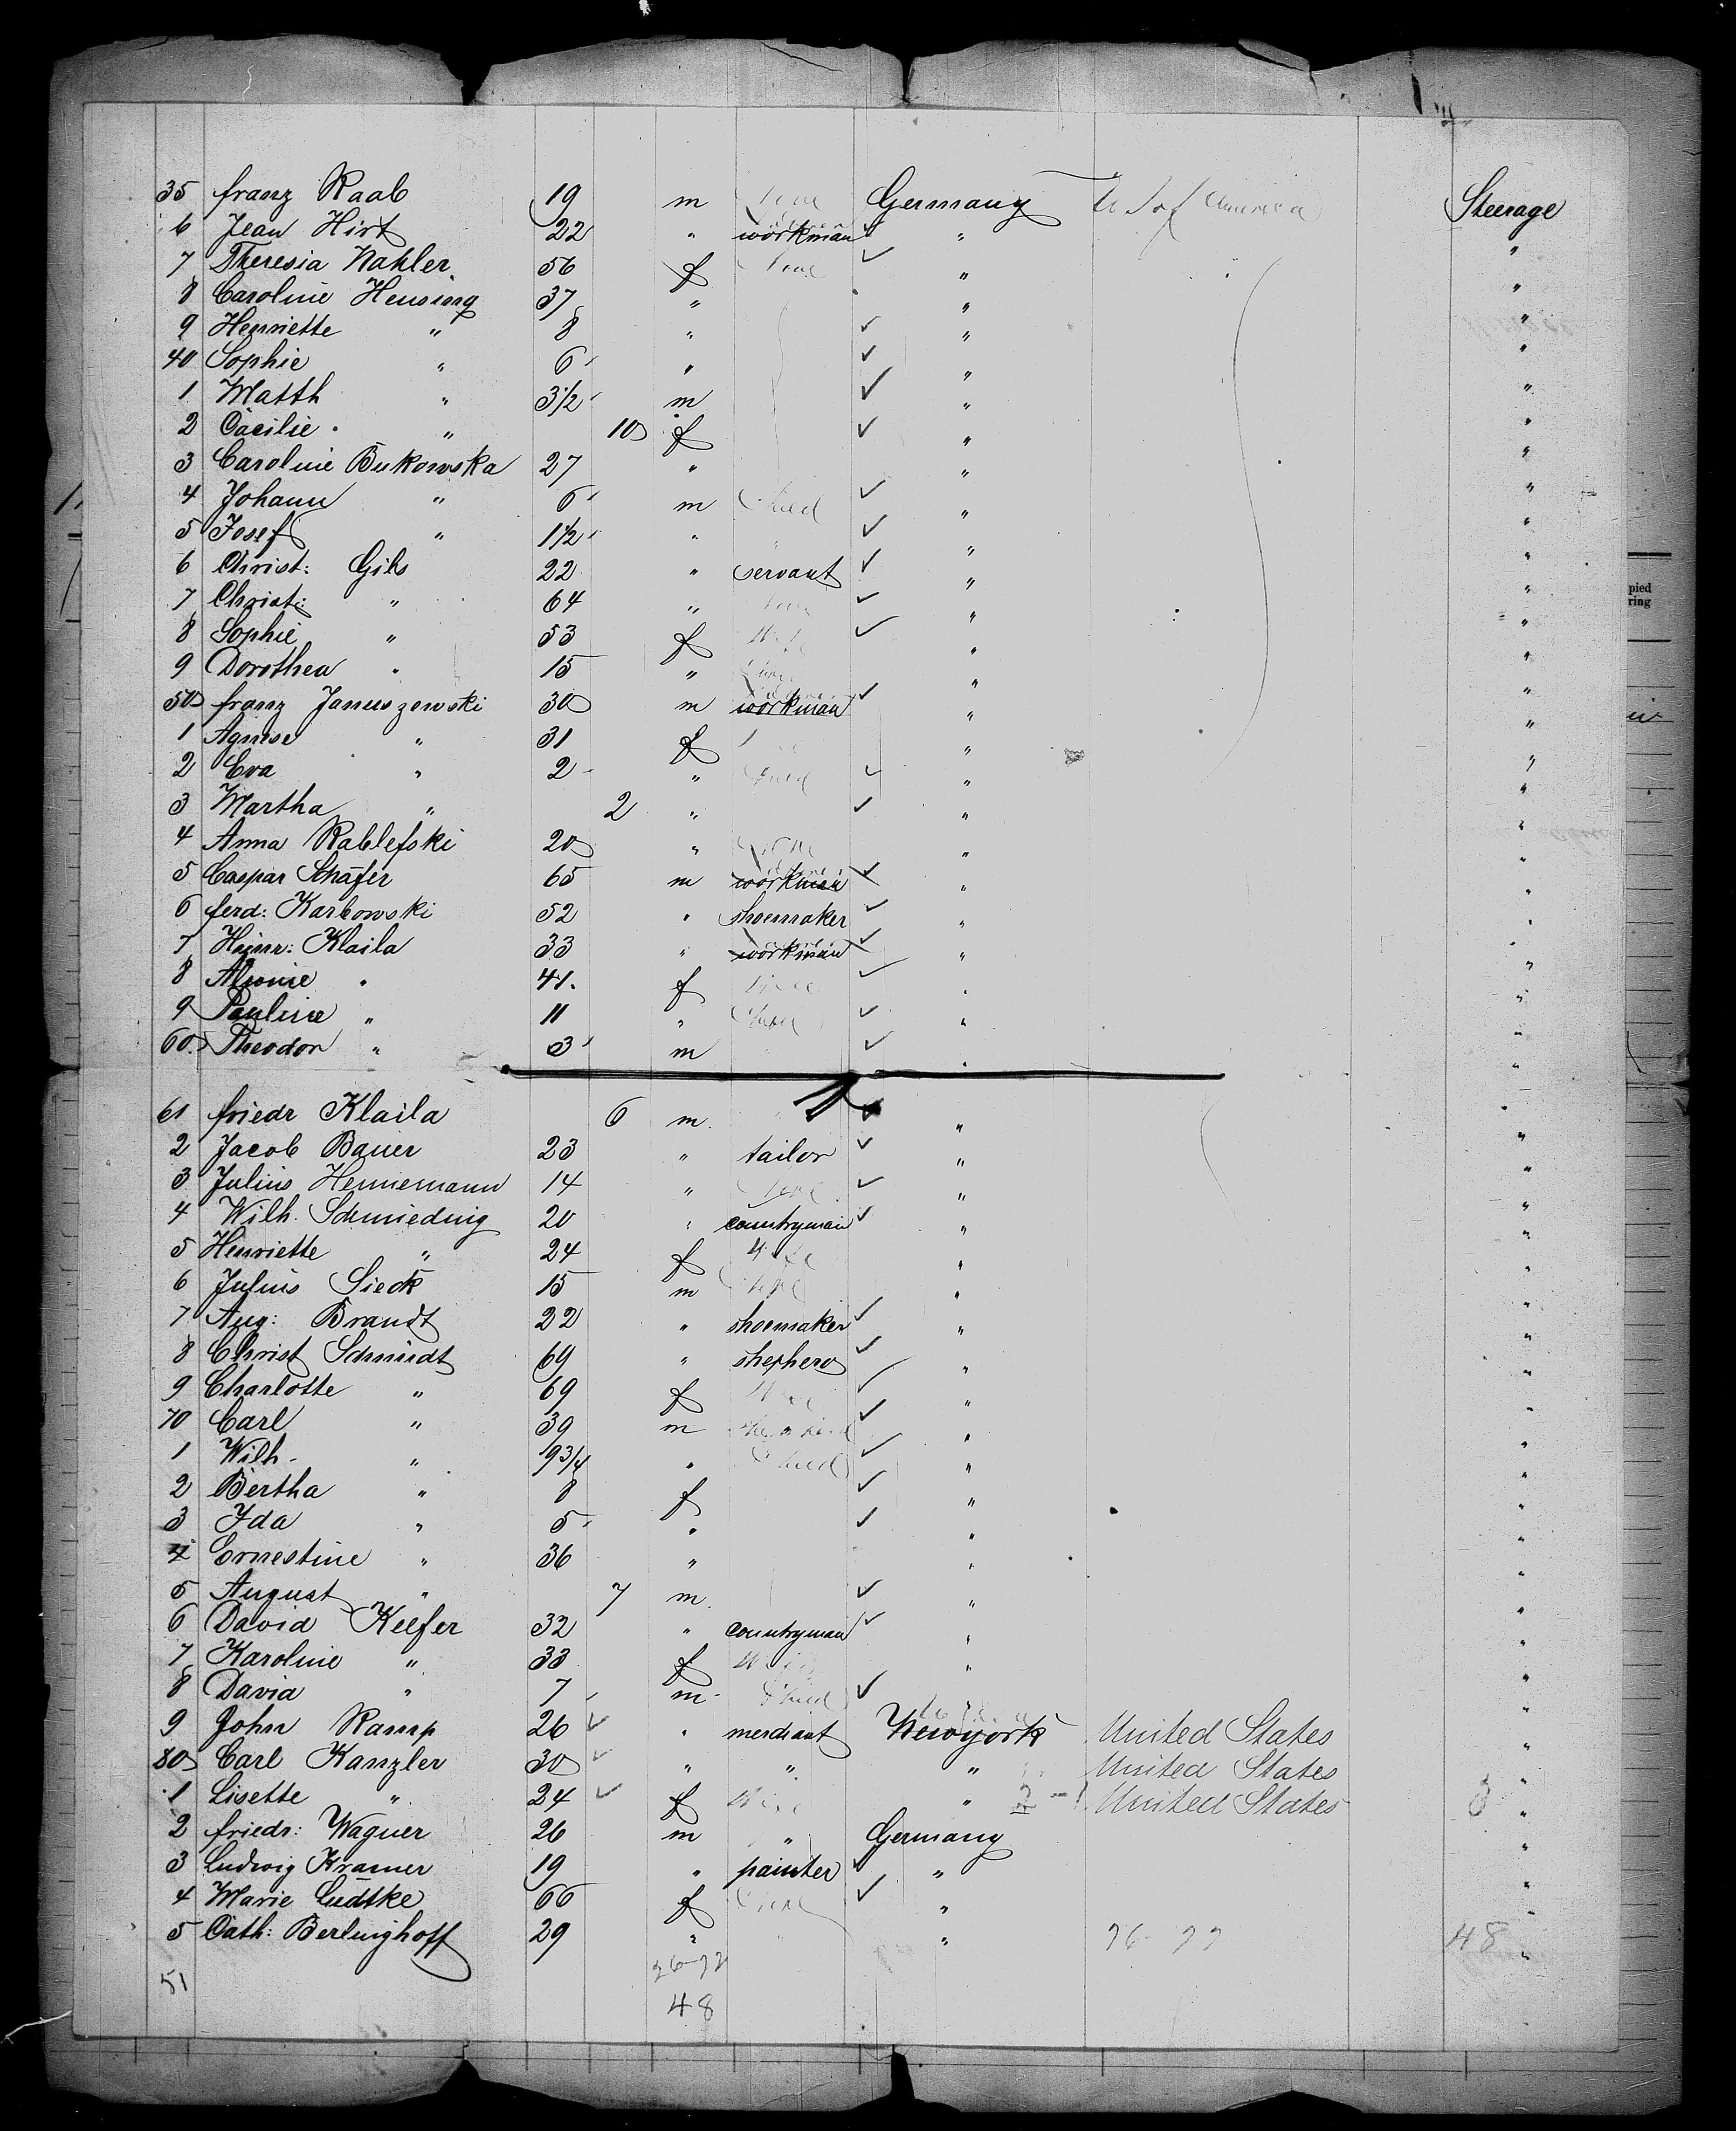 35 franz Raab 19 m None Germany U S of America Steerage
6 Jean Hirt 22 " workman "  "
7 Theresia Nahler 56 f None " "
8 Caroline Hensing 37 " " "
9 Henriette " 8 " " "
40 Sophie " 6 " " "
1 Matth " 3 1/2 m " "
2 Cäcilie " 10 f " "
3 Caroline Bukowska 27 " " "
4 Johann " 6 m Child " "
5 Josef " 1 1/2 " " "
6 Christ: Gils 22 " servant " "
7 Christ: " 64 " None " "
8 Sophie " 53 f Wife " "
9 Dorothea " 15 " " "
50 franz Januszewski 30 m workman " "
1 Agnese " 31 f " "
2 Eva " 2 " Child " "
3 Martha " 2 " " "
4 Anna Rablefski 20 " None " "
5 Caspar Schäfer 65 m workman " "
6 ferd: Karbowski 52 " shoemaker " "
7 Heinr: Klaila 33 " workman " "
8 Alwine " 41. f Wife " "
9 Pauline " 11 " Child " "
60. Theodor " 3 m " "
61 friedr Klaila 6 m. " "
2 Jacob Bauer 23 " tailor " "
3 Julius Hennemann 14 " None " "
4 Wilh. Schmieding 20 " countryman " "
5 Henriette " 24 f Wife " "
6 Julius Sieck 15 m None " "
7 Aug: Brandt 22 " shoemaker " "
8 Christ Schmidt 69 " shepherd " "
9 Charlotte " 69 f Wife " "
70 Carl " 39 m shepherd " "
1 Wilh. " 9 3/4 " Child " "
2 Bertha " 8 f " "
3 Ida " 5 " " "
4 Ernestine " 36 " " "
5 August " 7 m. " "
6 David Keefer 32 " countryman " "
7 Karoline " 33 f Wife " "
8 David " 7 m Child "
9 John Ramp 26 " merchant Newyork United States "
80 Carl Kanzler 30 " " " United States "
1 Lisette " 24 f Wife " 2 - 1 United States 3 "
2 friedr: Wagner 26 m " Germany "
3 Ludwig Kramer 19 " painter " "
4 Marie Lüdtke 66 f None " "
5 Cath: Berlinghoff 29 " " 26 - 22 48 "
51 26-22
48
pied
ring